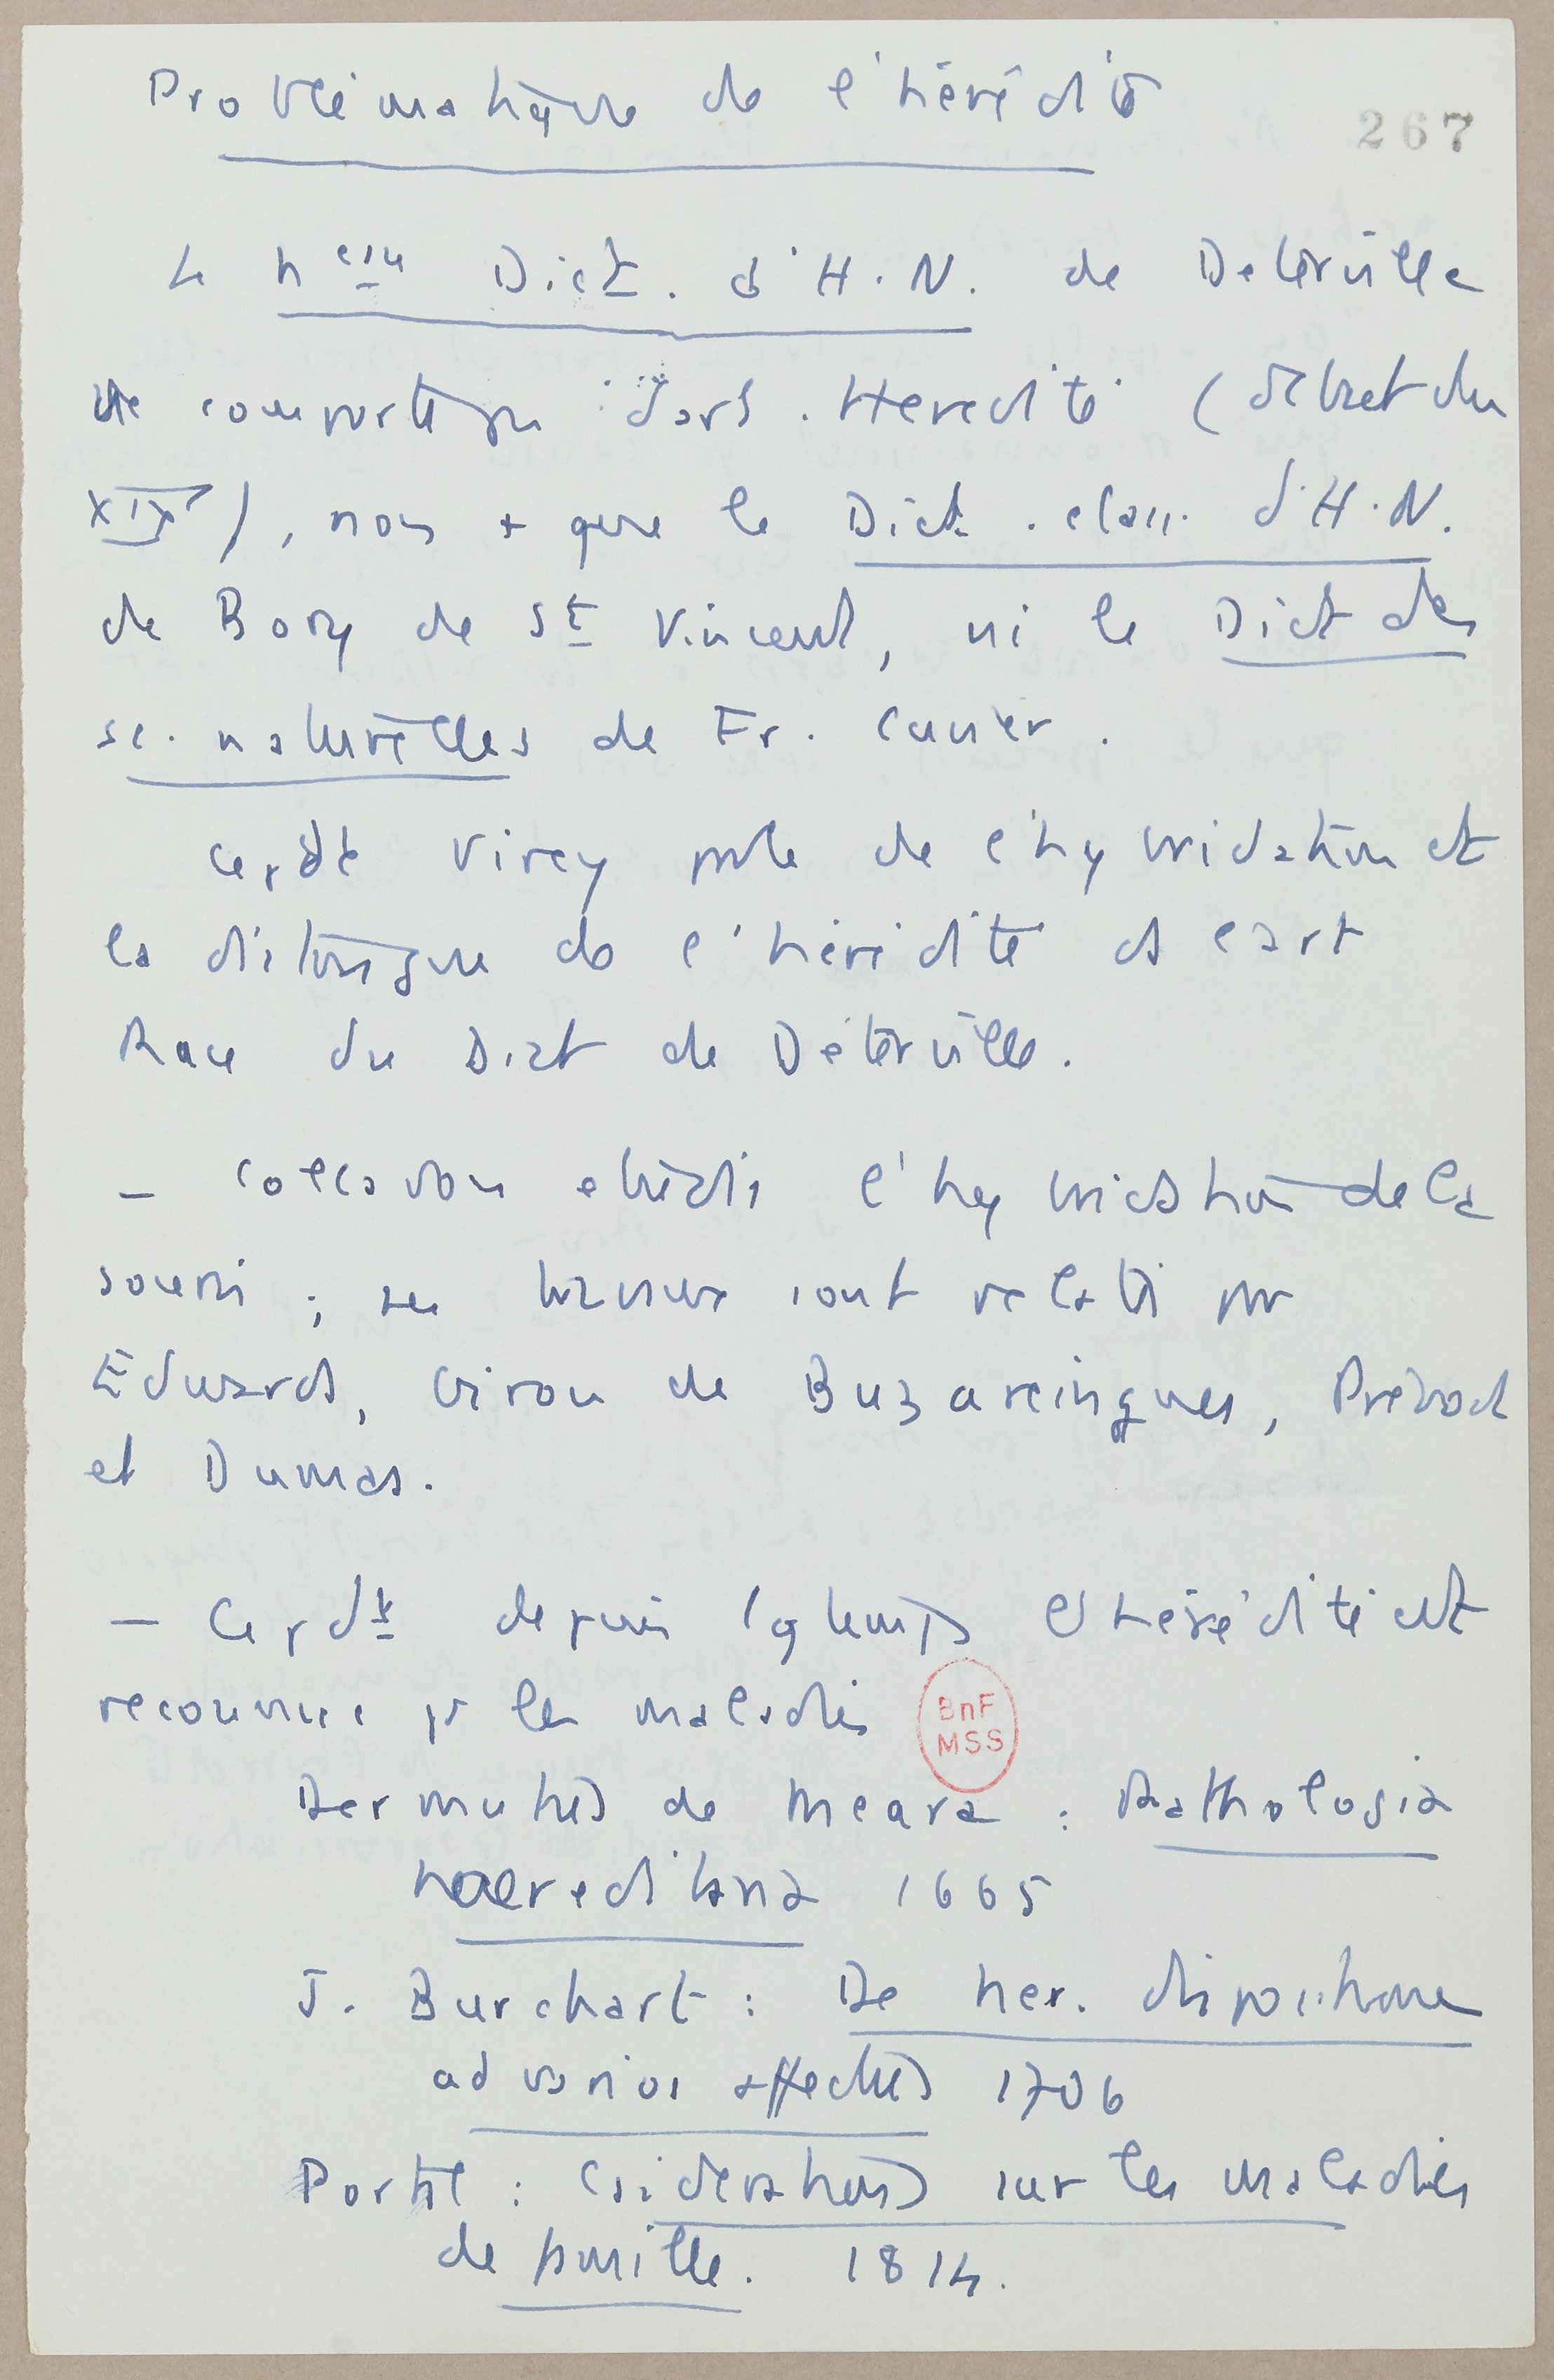 Problématique de l'hérédité
267
Le nveau Dict. d'H.N. de Déterville
ne comporte pas d'art. Hérédité (début du
XIXe), non + que le Dict. class. d'H.N.
de Bory de St Vincent, ni le Dict des
sc. naturelles de Fr. Cuvier.
Cepdt Virey parle de l'hybridation et
la distingue de l'hérédité ds l'art
Race du Dict de Déterville.
— Colladon étudie l'hybridation de la
souris ; ses travaux sont relatés par
Edwards, Girou de Buzareingues, Prévost
et Dumas.
— Cepdt depuis lgtemps l'hérédité est
reconnue pr les maladies
BnF
MSS
Dermutius de Meara : Pathologia
haereditaria 1665
J. Burchart : De her. dispositione
ad varios affectus 1706
Portal : Csidérations sur les maladies
de famille. 1814.